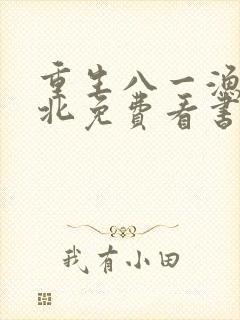 重生八一渔
北免费看书
我有小田